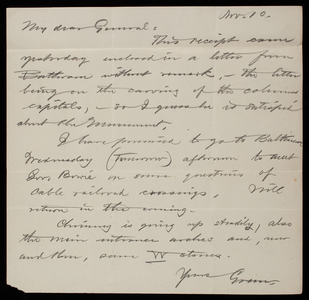 Nov. 10.
My dear General:
This receipt came
yesterday enclosed in a letter from
without remark, - the letter
being on the carving of the columns
capitals, - so I guess he is satisfied
about the Monument.
I have promised to go to Baltimore
Wednesday (tomorrow) afternoon to meet
Gov. Bowie on some questions of
Cable railroad crossings, Will
return in the evening.
Chimney is going up steadily, also
the main entrance arches and, now
and then, some W stones.
Yours Green